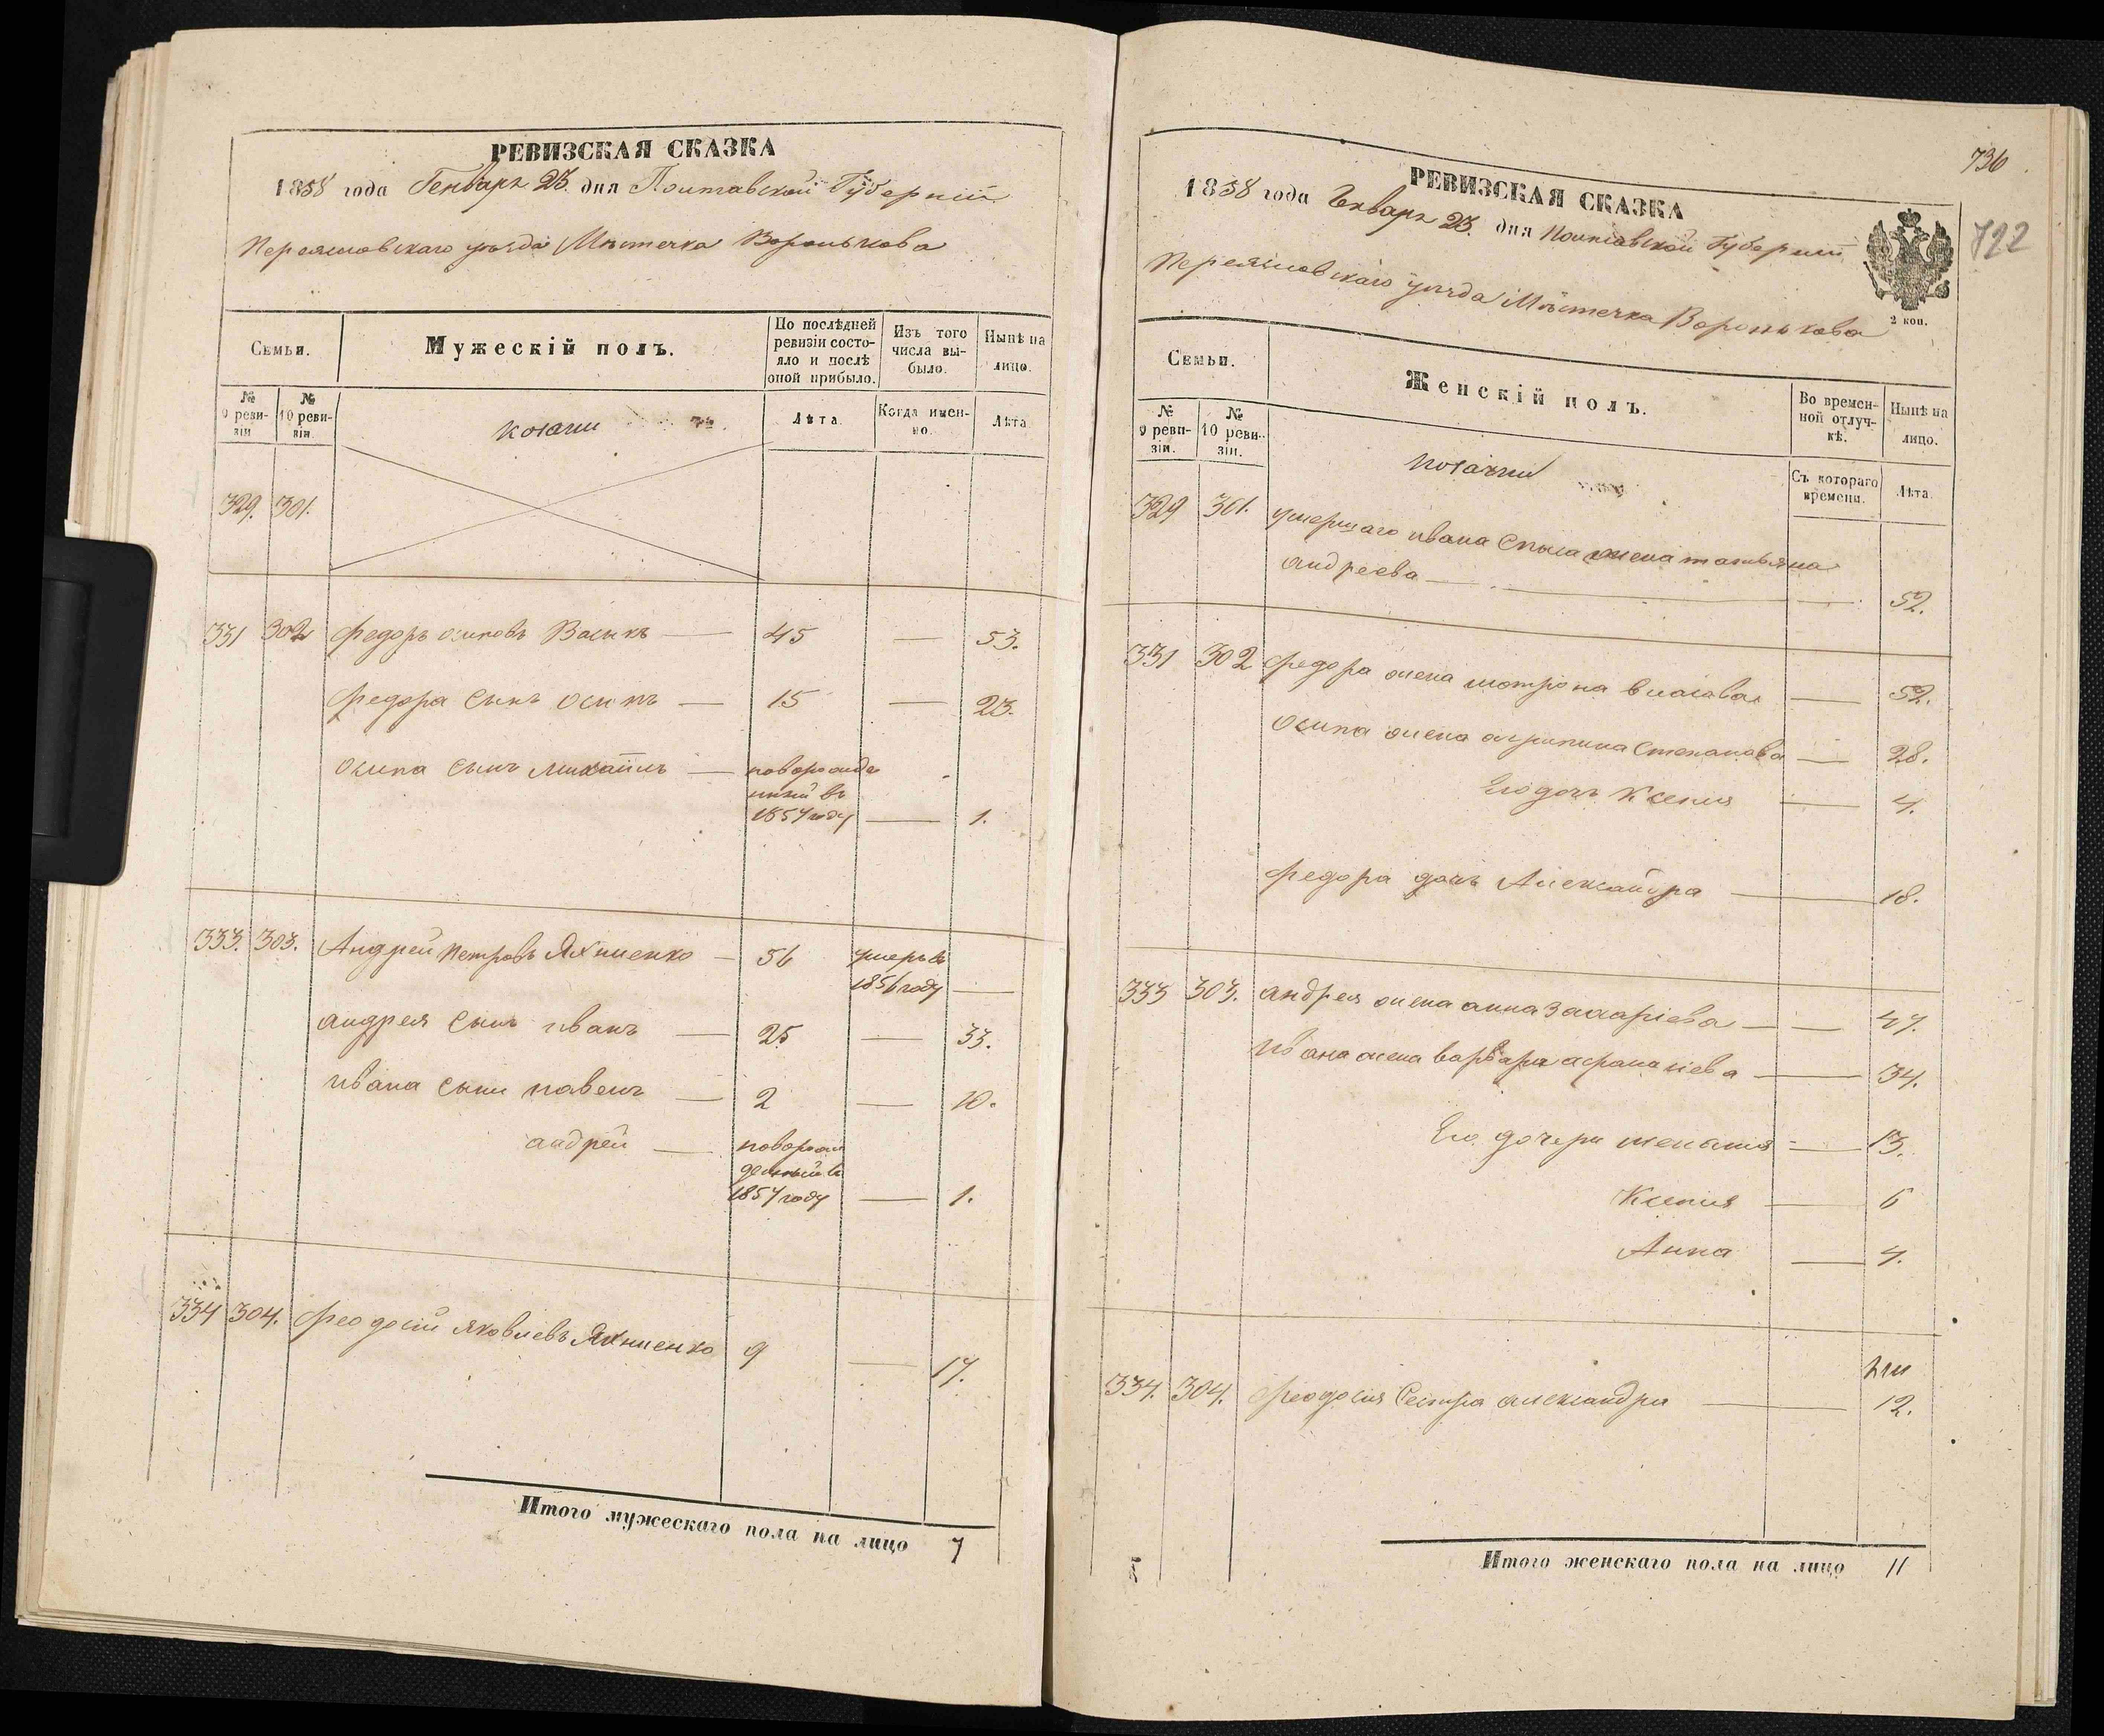 РЕВИЗСКАЯ СКАЗКА
1858 года Генваря 23. дня Полтавской Губернии
Переясловскаго уезда Местечка Воронькова
Семьи.
Мужескій полъ.
По послѣдней ревизіи состояло и послѣ оной прибыло.
Изъ того числа выбыло.
Нынѣ на лицо.
№ 9 ревизіи
№ 10 ревизіи
козаки
Лѣта.
Когда именно.
Лѣта
329. 301.
331 302 Федоръ осиповъ Васькъ — 45 — 53.
Федора сынъ осипъ — 15 — 23.
осипа сынъ михаилъ — новорожде
нный въ
1857 году — 1.
333. 303. Андрей Петровъ Яхненко — 56 умеръ въ
1856 году —
андрея сынъ иванъ — 25 — 33.
ивана сыны павелъ — 2 — 10.
андрей — новорож
денный въ
1857 году — 1.
334 304. Феодосій яковлевъ Яхненко 9 — 17.
Итого мужескаго пола на лицо 7
736
722
РЕВИЗСКАЯ СКАЗКА
1858 года Генваря 23. дня Полтавской Губернии
Переясловскаго уезда Мѣстечка Воронькова
2 коп.
Семьи.
Женскій полъ.
Во временной отлучкѣ.
Нынѣ на лицо.
№ 9 ревизіи.
№ 10 ревизіи.
козачки
Съ котораго времени.
Лѣта.
329 301. умершаго ивана жена татьяна
андреева — 52.
331 302 Федора жена мотрона власова — 52.
осипа жена агрипина Степанова — 28.
Его дочь Ксения — 4.
Федора дочь Александра — 18.
333 303. андрея жена анна Захаріева — 47.
Ивана жена варвара афанасіева — 34.
Его дочери — 13.
Ксения — 6
Анна — 4.
334. 304. Феодосія Сестра александра — 12.
Итого женскаго пола на лицо 11